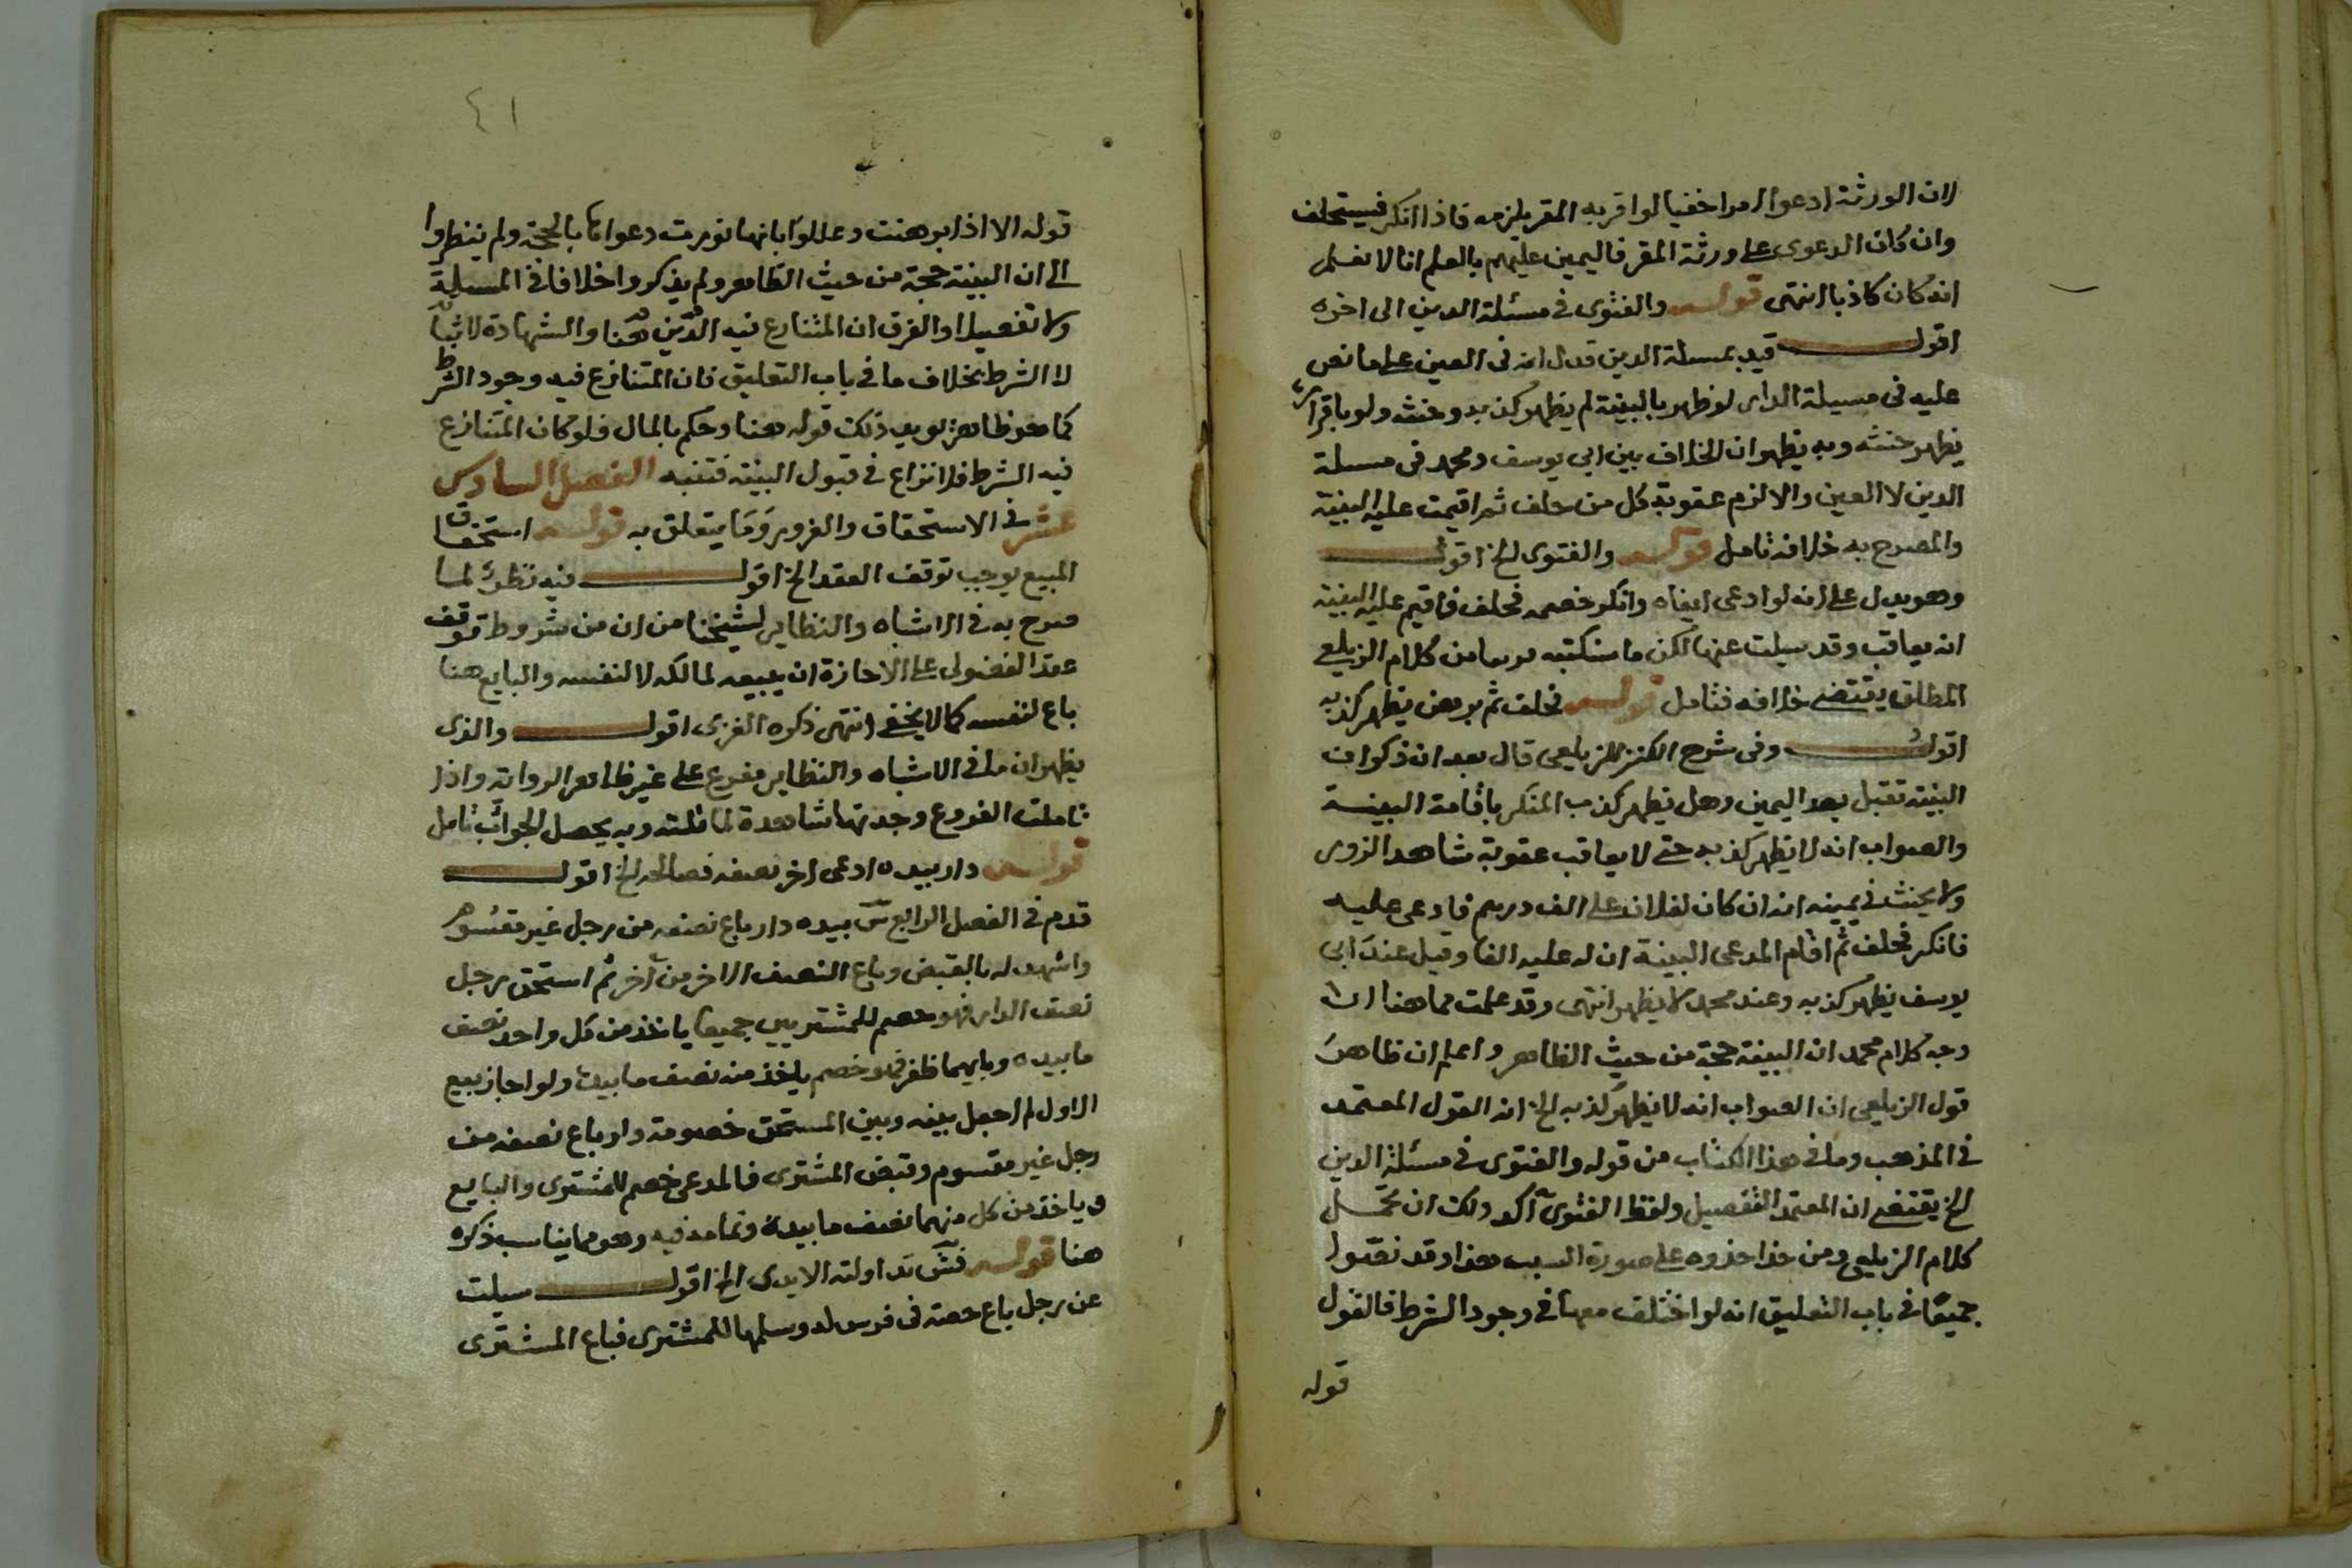 لان الورثة ادعوا امرا خفيا لوا قربه المقر يلزمه فاذا انكر فيستحلف
وان كان الدعوى على ورثة المقر فاليمين عليهم بالعلم انا لا نعلم
انه كان كاذبا انتهى قوله والفتوى في مسئلة الدين الى اخره
اقول قيد بمسلة الدين فدل انه في العين على ما نص
عليه في مسيلة الدار لو ظهر بالبينة لم يظهر كذبه وحنثه ولو باقراره
يظهر حنثه وبه يظهر ان الخلاف بين ابي يوسف ومحمد في مسلة
الدين لا العين والا لزم عقوبة كل من حلف ثم اقيمت عليه البينة
والمصرح به خلافه تامل قوله والفتوى الخ اقول
وهو يدل على انه لو ادعى ايفاه وانكر خصمه فحلف فاقيم عليه البينة
انه يعاقب وقد سيلت عنها لكن ما سنكتبه مربعا من كلام الزيلعي
المطلق يقتضي خلافه فتامل قوله فحلف ثم برهن يظهر كذبه
اقول وفي شرح الكنز للزيلعي قال بعد ان ذكر ان
البينة تقبل بعد اليمين وهل يظهر كذب المنكر باقامة البينة
والصواب انه لا يظهر كذبه حتى لا يعاقب عقوبة شاهد الزور
ولا يحنث في يمينه انه ان كان لفلان على الف درهم فادعى عليه
فانكر فحلف ثم اقام المدعى البينة ان له عليه الفا وقيل عند ابى
يوسف يظهر كذبه وعند محمد لا يظهر انتهى وقد علمت مما هنا ان
وجه كلام محمد ان البينة حجة من حيث الظاهر واعلم ان ظاهر
قول الزيلعي ان الصواب انه لا يظهر كذبه الخ انه القول المعتمد
في المذهب وما في هذا الكتاب من قوله والفتوى في مسئلة الدين
الخ يقتضي ان المعتمد التفصيل ولفظ الفتوى آكد ولك ان تحمل
كلام الزيلعي ومن حذا حذوه على صورة السبب هذا وقد نصوا
جميعا في باب التعليق انه لو اختلف معها في وجود الشرط فالقول
قوله
٤١
قوله الا اذا برهنت وعللوا بانها نورت دعواها بالحجة ولم ينظروا
الى ان البينة حجة من حيث الظاهر ولم يذكروا خلافا في المسيلة
ولا تفصيلا والفرق ان المتنازع فيه الدين هنا والشهادة لاثباته
لا الشرط بخلاف ما في باب التعليق فان المتنازع فيه وجود الشرط
كما هو ظاهر يويد ذلك قوله هنا وحكم بالمال فلو كان المتنازع
فيه الشرط فلا نزاع في قبول البينة فتنبه الفصل السادس
عشر في الاستحقاق والغرور وما يتعلق به قوله استحقاق
المبيع يوجب توقف العقد الخ اقول فيه نظر لما
صرح به في الاشباه والنظاير لشيخنا من ان من شروط توقف
عقد الفضولى على الاجازة ان يبيعه لمالكه لا لنفسه والبايع هنا
باع لنفسه كما لا يخفى انتهى ذكره الغزى اقول والذى
يظهر ان ما في الاشباه والنظاير مفرع على غير ظاهر الرواية واذا
تاملت الفروع وجدتها شاهدة لما قلته وبه يحصل الجواب تامل
قوله دار بيده ادعى اخر نصفه فصالحه الخ اقول
قدم في الفصل الرابع بيده دار باع نصفه من رجل غير مقسوم
واشهد له بالقبض وباع النصف الاخر من آخر ثم استحق رجل
نصف الدار فهو خصم للمشتريين جميعا ياخذ من كل واحد نصف
ما بيده وبايهما ظفر فهو خصم ياخذ منه نصف ما بيده ولو اجاز بيع
الاول لم اجعل بينه وبين المستحق خصومة دار باع نصفه من
رجل غير مقسوم وقبض المشترى فالمدعى خصم للمشترى والبايع
وياخذ من كل منهما نصف ما بيده وتمامه فيه وهو مما يناسب ذكره
هنا قوله تداولته الايدى الخ اقول سيلت
عن رجل باع حصته في فرس له وسلمها للمشترى فباع المشترى